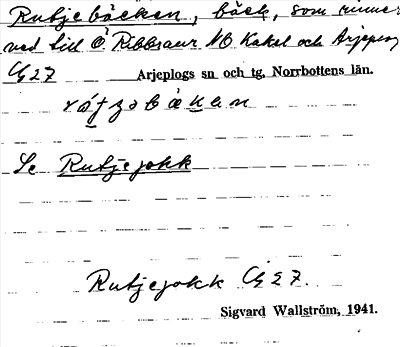 Rutjebäcken, bäck, som rinner
ned till Ö Ribbraur NO Kakel och Arjeplog
Cg 27 Arjeplogs sn och tg, Norrbottens län.
Se Rutjejokk
Rutjejokk Cg 27.
Sigvard Wallström, 1941.